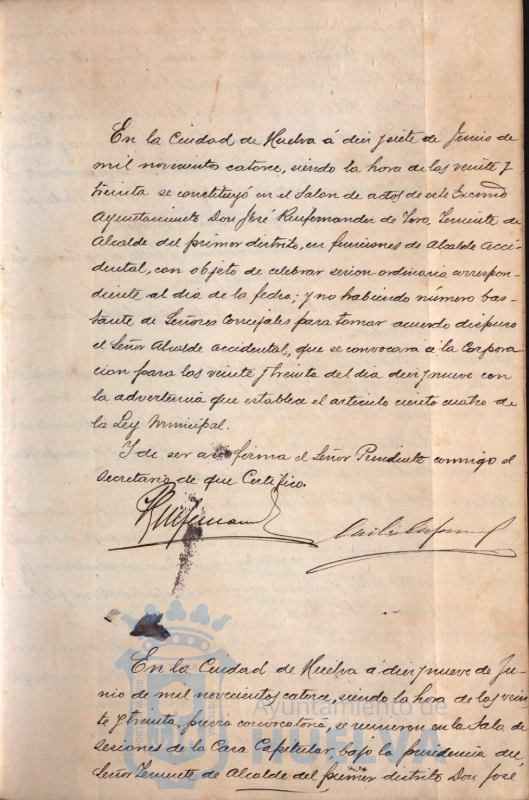 En la Ciudad de Huelva á diez y siete de Junio de
mil novecientos catorce, siendo la hora de las veinte y
treinta se constituyó en el Salon de actos de este Excmo
Ayuntamiento Don José Ruifernandez de Tera, Teniente de
Alcalde del primer distrito, en funciones de Alcalde Acci-
dental, con objeto de celebrar sesion ordinaria correspon-
diente al dia de la fecha; y no habiendo número bas-
tante de Señores Concejales para tomar acuerdo dispuso
el Señor Alcalde accidental, que se convocara á la Corpora
cion para las veinte y treinta del dia diez y nueve con
la advertencia que establece el artículo ciento cuatro de
la Ley Municipal.
Y de ser asi firma el Señor Presidente conmigo el
Secretario de que Certifico.
En la Ciudad de Huelva á diez y nueve de Ju-
nio de mil novecientos catorce, siendo la hora de las vein
te y treinta, previa convocatoria, se reunieron en la Sala de
sesiones de la Casa Capitular, bajo la presidencia del
Señor Teniente de Alcalde del primer distrito Don José
Ayuntamiento de
HUELVA